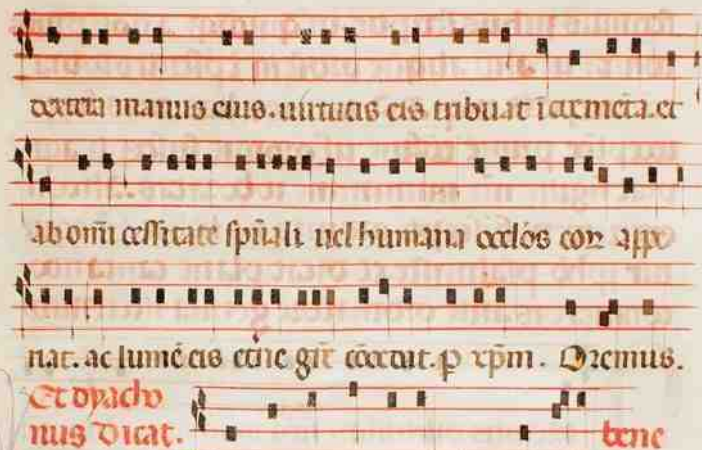 dextera manus eius. uirtutis eis tribuat īcremēta. et
ab omī cessitate spūali uel humana occlos eoꝝ appe
riat. ac lumē eis etne grē cōcedat. p xp̄m. Oremus.
Et dyacho
nus dicat. bene